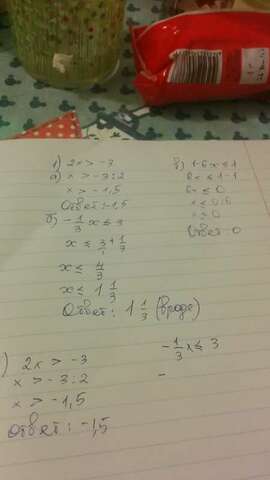 1) 2x > -3
а) x > -3:2
x > -1,5
Ответ: -1,5
б) -1/3 x ≤ 3
x ≤ 3/1 + 1/3
x ≤ 4/3
x ≤ 1 1/3
Ответ: 1 1/3 (вроде)
в) 1-6x ≤ 1
6x ≤ 1-1
6x ≤ 0
x ≤ 0:6
x ≤ 0
Ответ: 0
) 2x > -3
x > -3:2
x > -1,5
Ответ: -1,5
-1/3 x ≤ 3
-